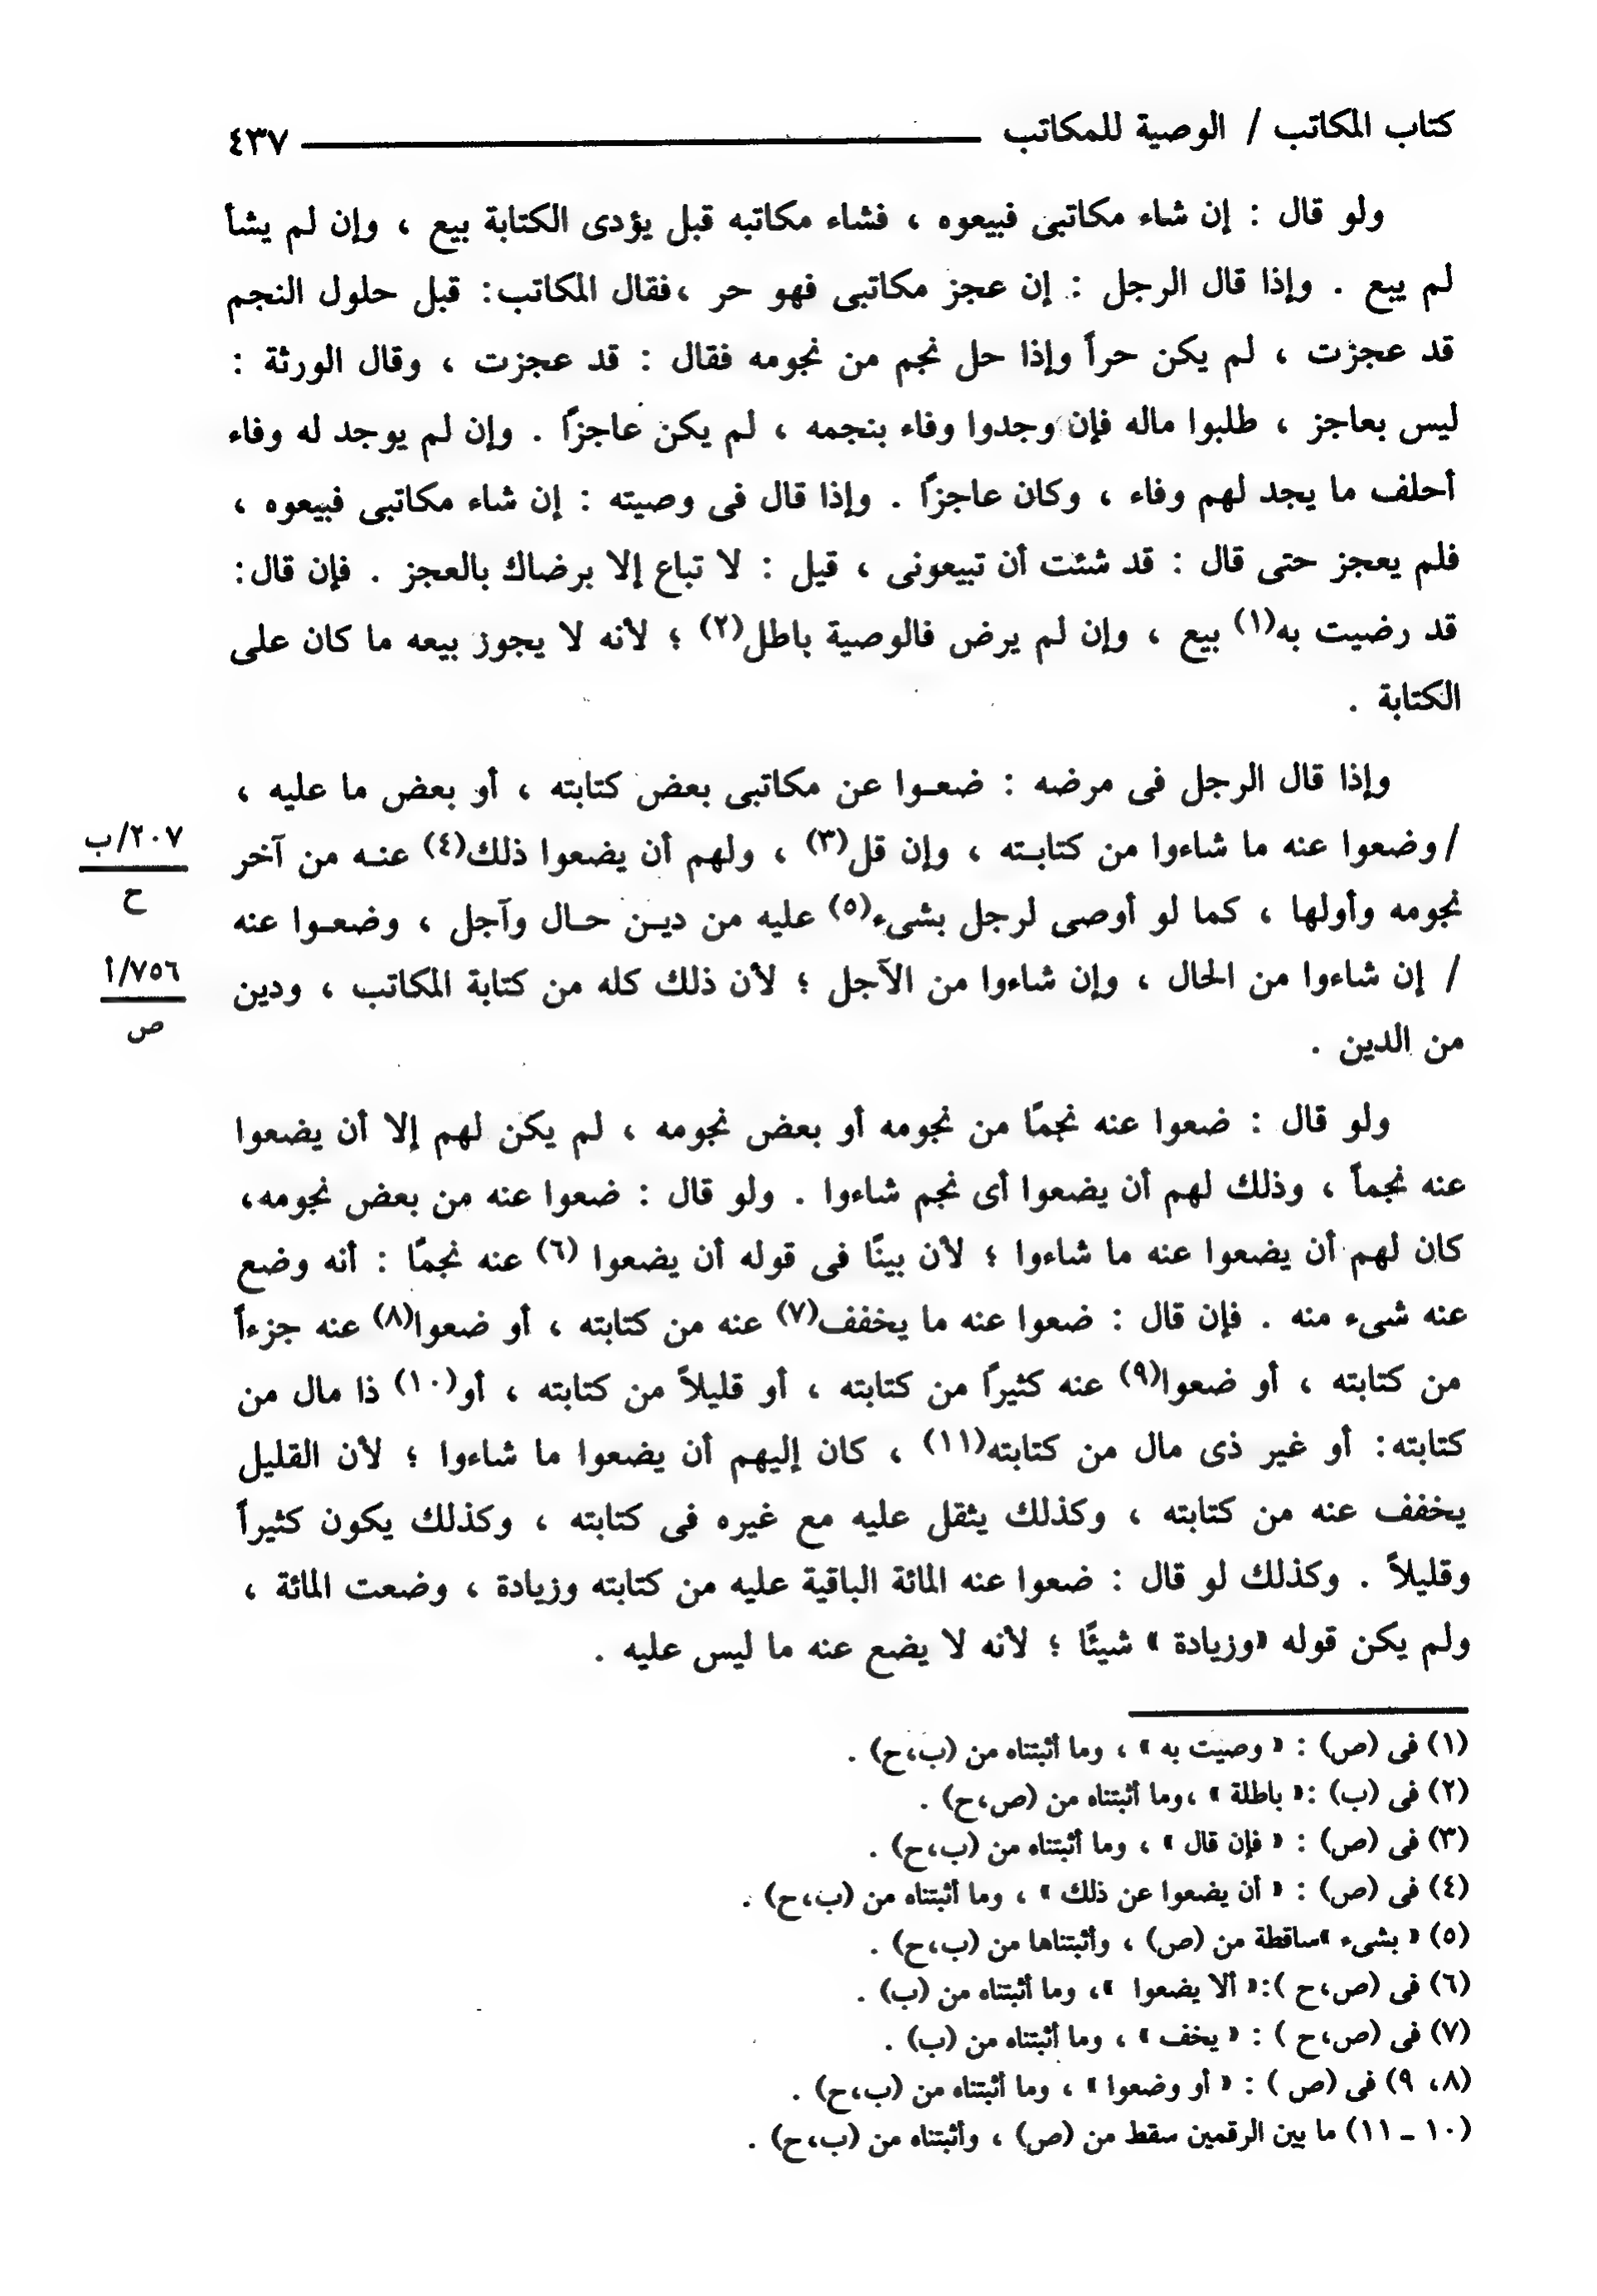 كتاب المكاتب / الوصية للمكاتب ٤٣٧
ولو قال : إن شاء مكاتبى فبيعوه ، فشاء مكاتبه قبل يؤدى الكتابة بيع ، وإن لم يشأ
لم يبع . وإذا قال الرجل : إن عجز مكاتبى فهو حر ،فقال المكاتب: قبل حلول النجم
قد عجزت ، لم يكن حراً وإذا حل نجم من نجومه فقال : قد عجزت ، وقال الورثة :
ليس بعاجز ، طلبوا ماله فإن وجدوا وفاء بنجمه ، لم يكن عاجزاً . وإن لم يوجد له وفاء
أحلف ما يجد لهم وفاء ، وكان عاجزاً . وإذا قال فى وصيته : إن شاء مكاتبى فبيعوه ،
فلم يعجز حتى قال : قد شئت أن تبيعونى ، قيل : لا تباع إلا برضاك بالعجز . فإن قال:
قد رضيت به(١) بيع ، وإن لم يرض فالوصية باطل(٢) ؛ لأنه لا يجوز بيعه ما كان على
الكتابة .
وإذا قال الرجل فى مرضه : ضعوا عن مكاتبى بعض كتابته ، أو بعض ما عليه ،
/وضعوا عنه ما شاءوا من كتابته ، وإن قل(٣) ، ولهم أن يضعوا ذلك(٤) عنه من آخر
٢٠٧/ب
ح
نجومه وأولها ، كما لو أوصى لرجل بشىء(٥) عليه من دين حال وآجل ، وضعوا عنه
/ إن شاءوا من الحال ، وإن شاءوا من الآجل ؛ لأن ذلك كله من كتابة المكاتب ، ودين
٧٥٦/أ
ص
من الدين .
ولو قال : ضعوا عنه نجمًا من نجومه أو بعض نجومه ، لم يكن لهم إلا أن يضعوا
عنه نجماً ، وذلك لهم أن يضعوا أى نجم شاءوا . ولو قال : ضعوا عنه من بعض نجومه،
كان لهم أن يضعوا عنه ما شاءوا ؛ لأن بينًا فى قوله أن يضعوا (٦) عنه نجمًا : أنه وضع
عنه شىء منه . فإن قال : ضعوا عنه ما يخفف(٧) عنه من كتابته ، أو ضعوا(٨) عنه جزءاً
من كتابته ، أو ضعوا(٩) عنه كثيراً من كتابته ، أو قليلاً من كتابته ، أو(١٠) ذا مال من
كتابته: أو غير ذى مال من كتابته(١١) ، كان إليهم أن يضعوا ما شاءوا ؛ لأن القليل
يخفف عنه من كتابته ، وكذلك يثقل عليه مع غيره فى كتابته ، وكذلك يكون كثيراً
وقليلاً . وكذلك لو قال : ضعوا عنه المائة الباقية عليه من كتابته وزيادة ، وضعت المائة ،
ولم يكن قوله «وزيادة » شيئًا ؛ لأنه لا يضع عنه ما ليس عليه .
(١) فى (ص) : « وصيت به » ، وما أثبتناه من (ب،ح) .
(٢) فى (ب) :« باطلة » ،وما أثبتناه من (ص،ح) .
(٣) فى (ص) : « فإن قال » ، وما أثبتناه من (ب،ح) .
(٤) فى (ص) : « أن يضعوا عن ذلك » ، وما أثبتناه من (ب،ح) .
(٥) « بشىء »ساقطة من (ص) ، وأثبتناها من (ب،ح) .
(٦) فى (ص،ح ):« ألا يضعوا »، وما أثبتناه من (ب) .
(٧) فى (ص،ح ) : « يخف » ، وما أثبتناه من (ب) .
(٨، ٩) فى (ص ) : « أو وضعوا » ، وما أثبتناه من (ب،ح) .
(١٠ ـ ١١) ما بين الرقمين سقط من (ص) ، وأثبتناه من (ب،ح) .